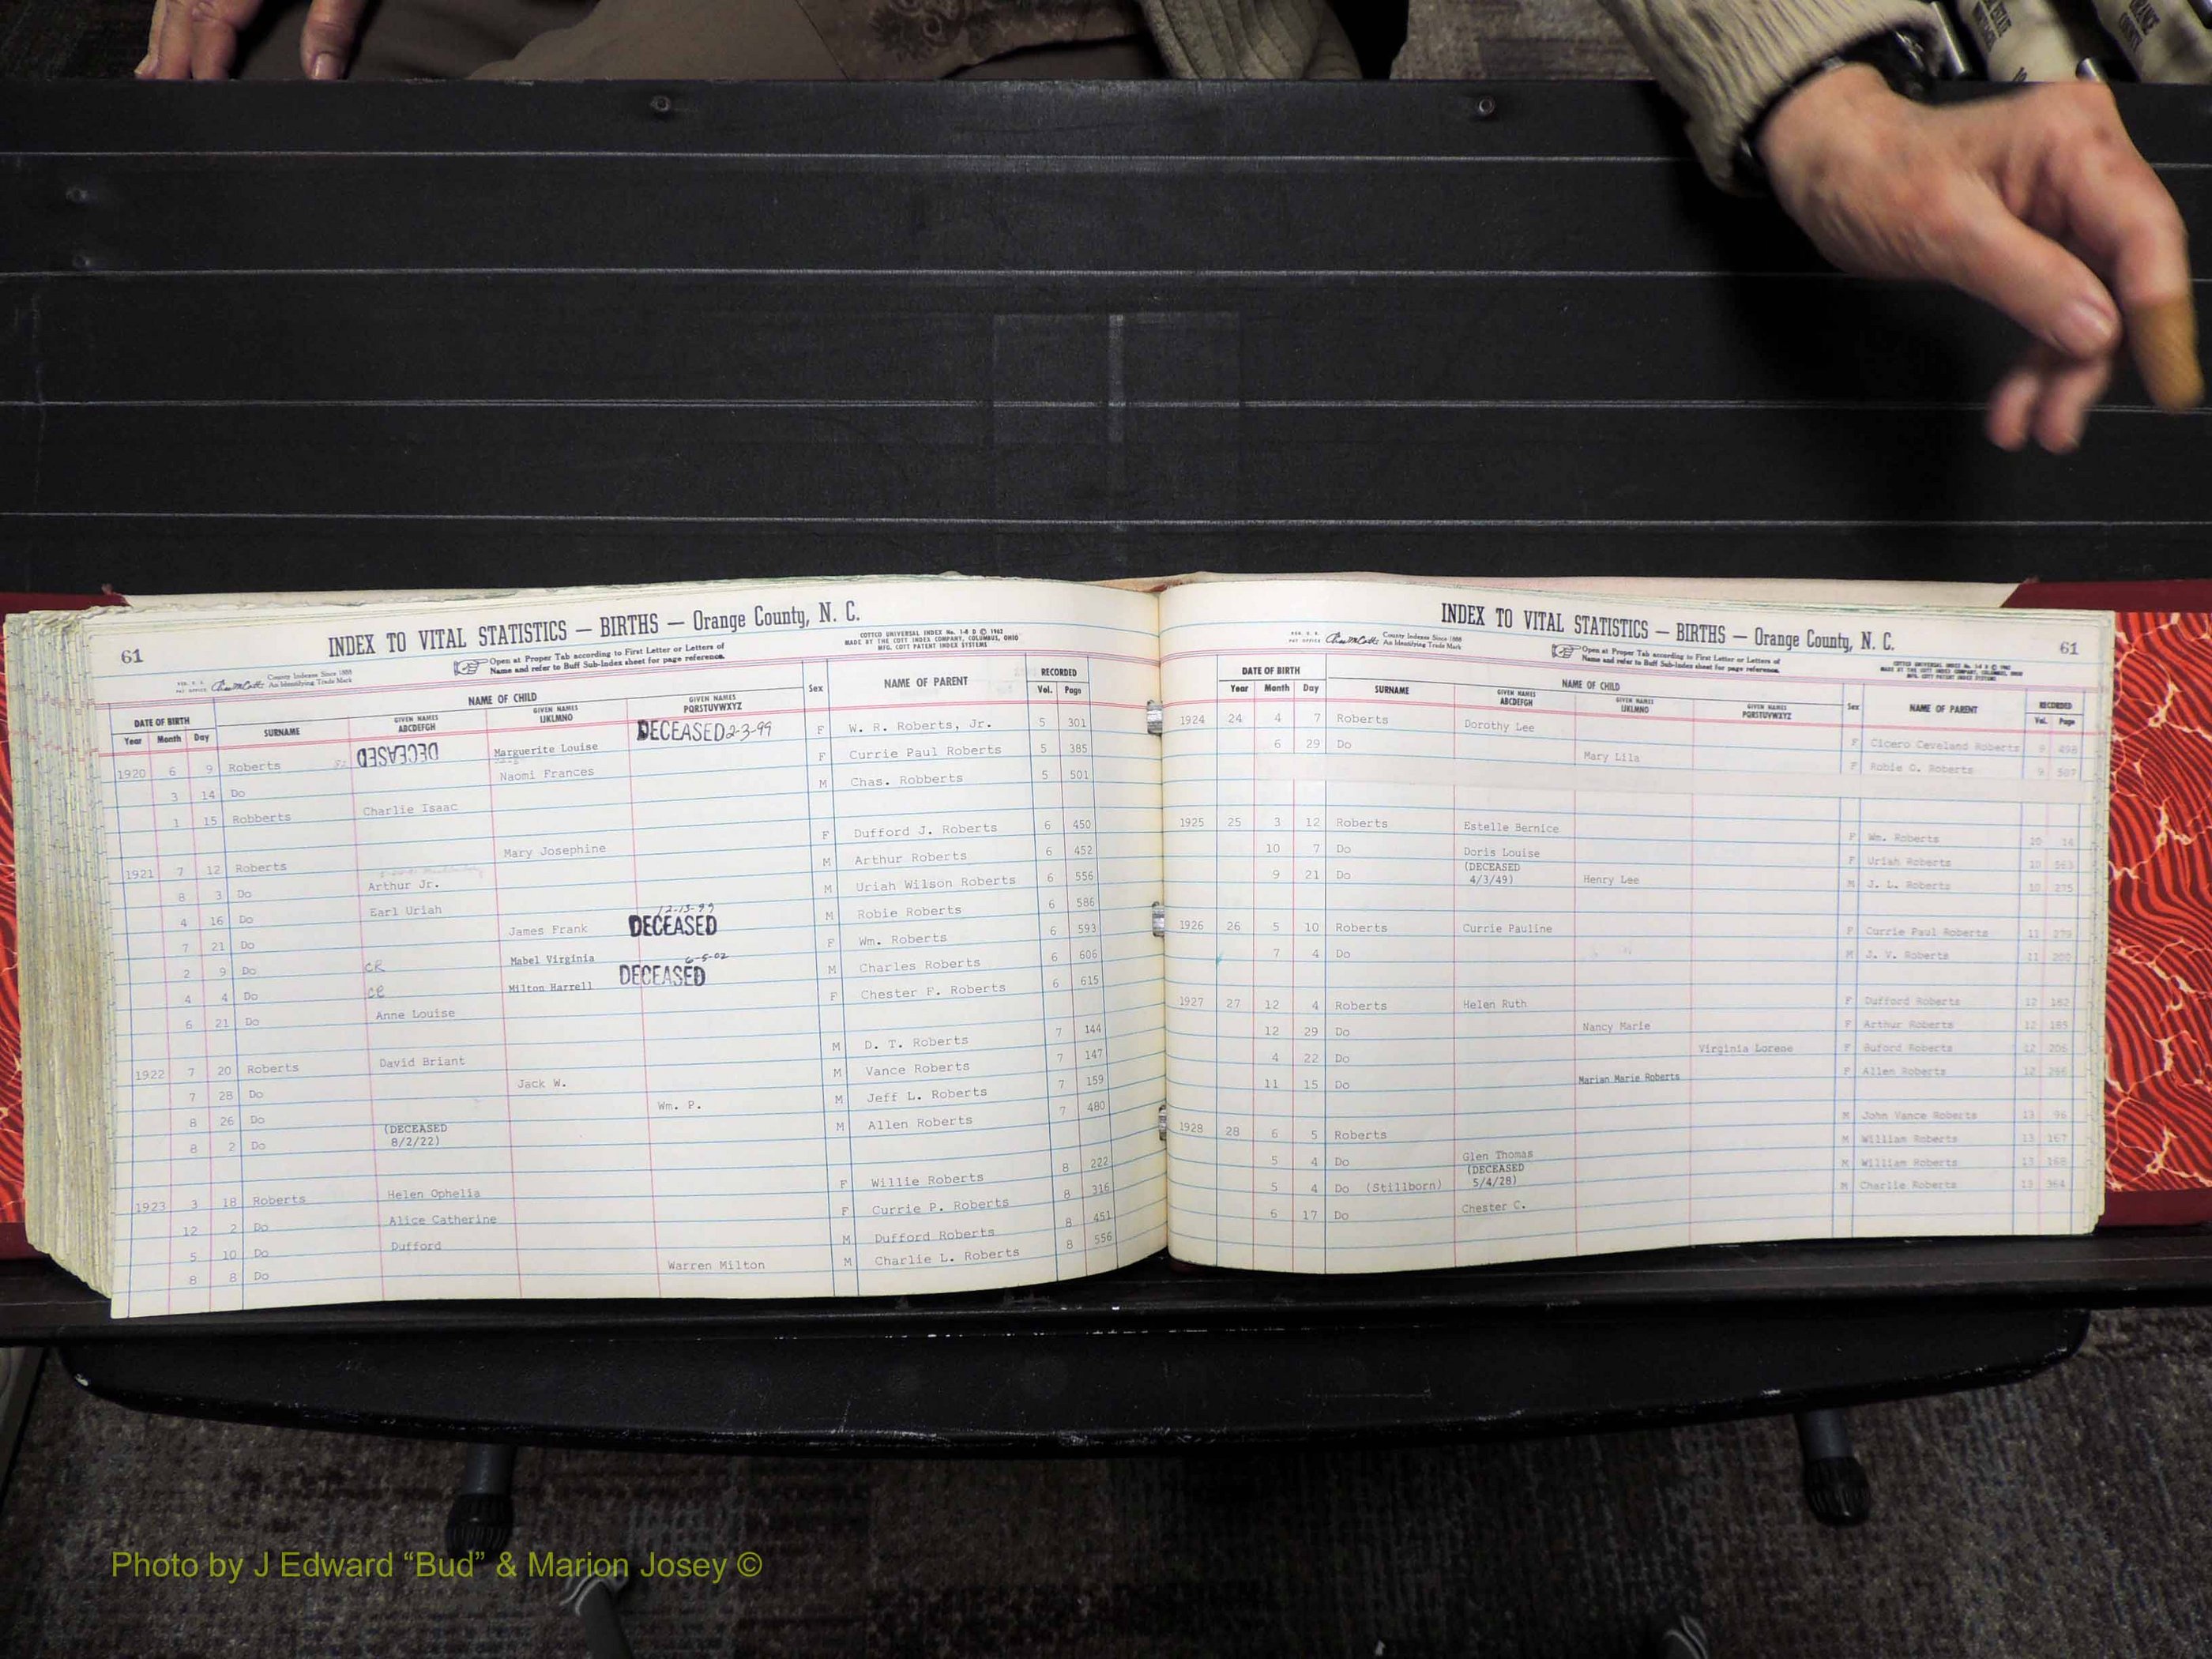 61
INDEX TO VITAL STATISTICS — BIRTHS — Orange County, N. C.
County Indexes Since 1888
An Identifying Trade Mark
Open at Proper Tab according to First Letter or Letters of
Name and refer to Buff Sub-Index sheet for page reference.
COTTCO UNIVERSAL INDEX No. 1-8 D © 1962
MADE BY THE COTT INDEX COMPANY, COLUMBUS, OHIO
MFG. COTT PATENT INDEX SYSTEMS
DATE OF BIRTH NAME OF CHILD Sex NAME OF PARENT RECORDED
Year Month Day SURNAME GIVEN NAMES ABCDEFGH GIVEN NAMES IJKLMNO GIVEN NAMES PQRSTUVWXYZ Vol. Page
1920 6 9 Roberts DECEASED Marguerite Louise DECEASED 2-3-99 F W. R. Roberts, Jr. 5 301
3 14 Do Naomi Frances F Currie Paul Roberts 5 385
1 15 Robberts Charlie Isaac M Chas. Robberts 5 501
1921 7 12 Roberts Mary Josephine F Dufford J. Roberts 6 450
8 3 Do Arthur Jr. M Arthur Roberts 6 452
4 16 Do Earl Uriah M Uriah Wilson Roberts 6 556
7 21 Do James Frank DECEASED 12-13-99 M Robie Roberts 6 586
2 9 Do CR Mabel Virginia F Wm. Roberts 6 593
4 4 Do CR Milton Harrell DECEASED 6-5-02 M Charles Roberts 6 606
6 21 Do Anne Louise F Chester F. Roberts 6 615
1922 7 20 Roberts David Briant M D. T. Roberts 7 144
7 28 Do Jack W. M Vance Roberts 7 147
8 26 Do Wm. P. M Jeff L. Roberts 7 159
8 2 Do (DECEASED 8/2/22) M Allen Roberts 7 480
1923 3 18 Roberts Helen Ophelia F Willie Roberts 8 222
12 2 Do Alice Catherine F Currie P. Roberts 8 316
5 10 Do Dufford M Dufford Roberts 8 451
8 8 Do Warren Milton M Charlie L. Roberts 8 556
61
INDEX TO VITAL STATISTICS — BIRTHS — Orange County, N. C.
County Indexes Since 1888
An Identifying Trade Mark
Open at Proper Tab according to First Letter or Letters of
Name and refer to Buff Sub-Index sheet for page reference.
COTTCO UNIVERSAL INDEX No. 1-8 D © 1962
MADE BY THE COTT INDEX COMPANY, COLUMBUS, OHIO
MFG. COTT PATENT INDEX SYSTEMS
DATE OF BIRTH NAME OF CHILD Sex NAME OF PARENT RECORDED
Year Month Day SURNAME GIVEN NAMES ABCDEFGH GIVEN NAMES IJKLMNO GIVEN NAMES PQRSTUVWXYZ Vol. Page
1924 24 4 7 Roberts Dorothy Lee F Cicero Ceveland Roberts 9 498
6 29 Do Mary Lila F Robie O. Roberts 9 507
1925 25 3 12 Roberts Estelle Bernice F Wm. Roberts 10 14
10 7 Do Doris Louise F Uriah Roberts 10 563
9 21 Do (DECEASED 4/3/49) Henry Lee M J. L. Roberts 10 275
1926 26 5 10 Roberts Currie Pauline F Currie Paul Roberts 11 279
7 4 Do M J. V. Roberts 11
1927 27 12 4 Roberts Helen Ruth F Dufford Roberts 12 182
12 29 Do Nancy Marie F Arthur Roberts 12 185
4 22 Do Virginia Lorene F Buford Roberts 12 206
11 15 Do Marian Marie Roberts F Allen Roberts 12
1928 28 6 5 Roberts M John Vance Roberts 13 96
5 4 Do Glen Thomas M William Roberts 13 167
5 4 Do (Stillborn) (DECEASED 5/4/28) M William Roberts 13 168
6 17 Do Chester C. M Charlie Roberts 13 364
Photo by J Edward “Bud” & Marion Josey ©